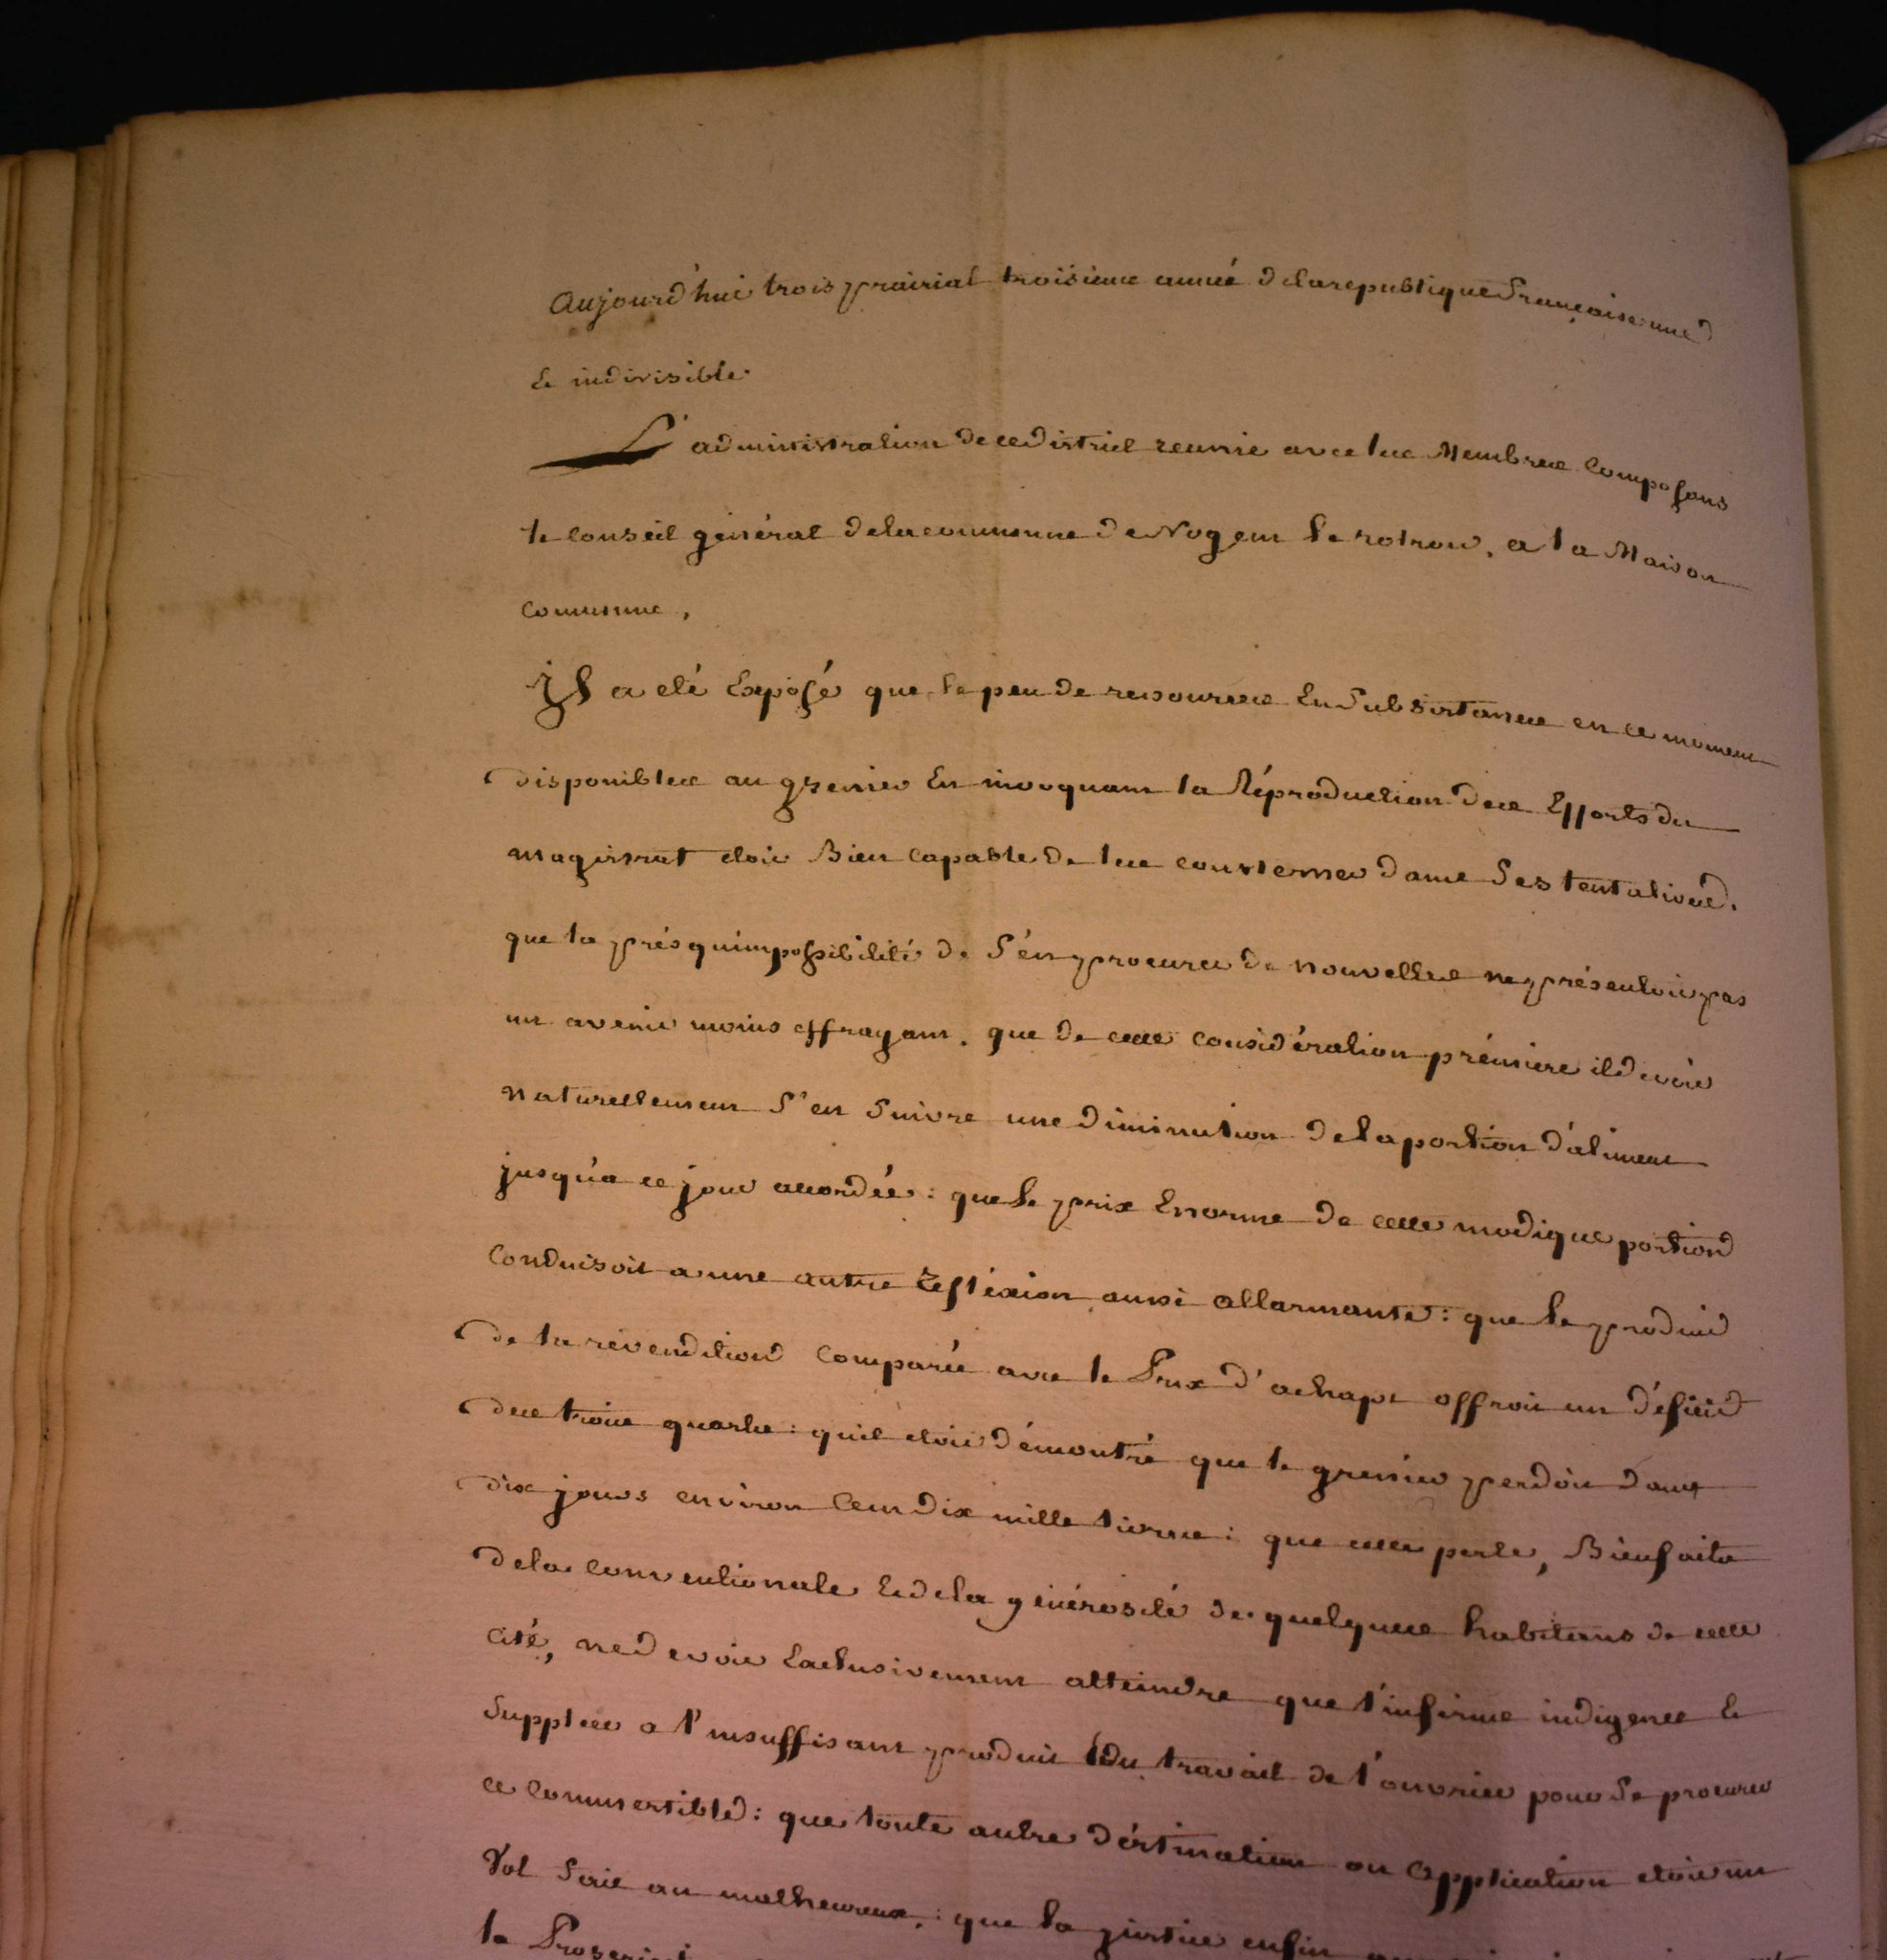 Aujourd'hui trois prairial troisieme année de la republique francaise une
Et indivisible.
L'administration de ce district reunie avec les Membres Composans
le Conseil général de la commune de Nogent Le rotrou, a la Maison
Commune,
Il a été Exposé que le peu de ressources En Subsistances en ce moment
disponibles au grenier En invoquant la Réproduction des Efforts du
magistrat etoit Bien Capable de les consterner dans Ses tentatives.
que la présqu'impossibilité de S'en procurer de nouvelles ne présentoit pas
un avenir moins effrayant. que de cette Considération prémiere il devoit
naturellement S'en Suivre une Diminution de la portion d'aliment
jusqu'a ce jour accordée : que le prix Enorme de cette modique portion
Conduisoit a une autre Refléxion aussi allarmante : que le produit
de la revendition Comparée avec le Prix d'achapt offroit un déficit
des trois quarts : quil etoit démontré que le grenier perdoit dans
dix jours environ Cent Dix mille livres : que cette perte, Bienfaits
de la Conventionale Et de la générosité de quelques habitans de cette
cité, ne devoit Exclusivement atteindre que l'infirme indigence Et
Suppleer a l'insuffisant produit du travail de l'ouvrier pour Se procurer
ce Commestible : que toute autre déstination ou Application etoit un
Vol Fait au malheureux : que la justice enfin
la